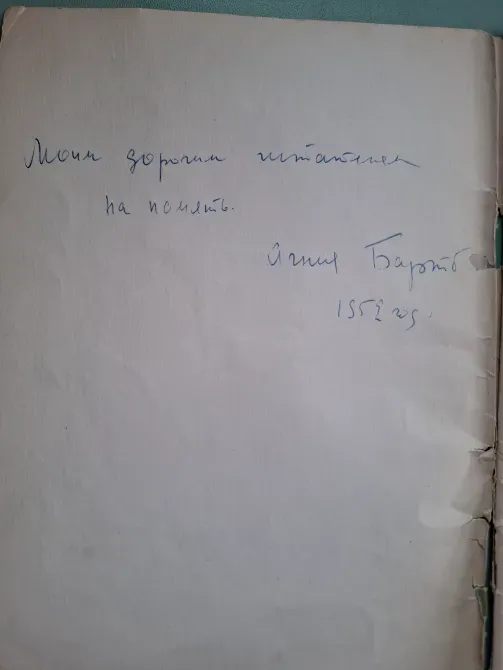 Моим дорогим читателям
на память.
Агния Барто
1952 год.